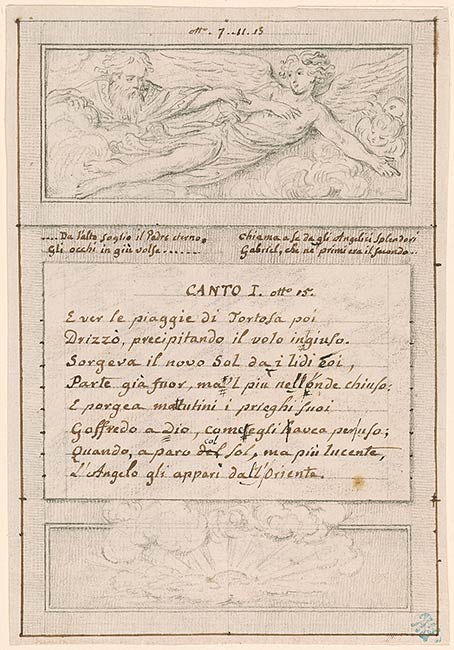 ott.e 7.11.13
....Da l'alto soglio il Padre eterno
Gli occhi in giù volse.......
Chiama a se da gli Angelici splendori
Gabriel, che nè primi era il secondo...
CANTO I. ott.e 15.
E ver le piaggie di Tortosa poi
Drizzò, precipitando il volo in giuso.
Sorgeva il novo Sol da i lidi Eoi,
Parte già fuor, ma'l più nell'onde chiuso;
E porgea matutini i prieghi suoi
Goffredo a Dio, com'egli havea per uso;
Quando, a paro col sol, ma più lucente,
L'Angelo gli appari dall'Oriente.